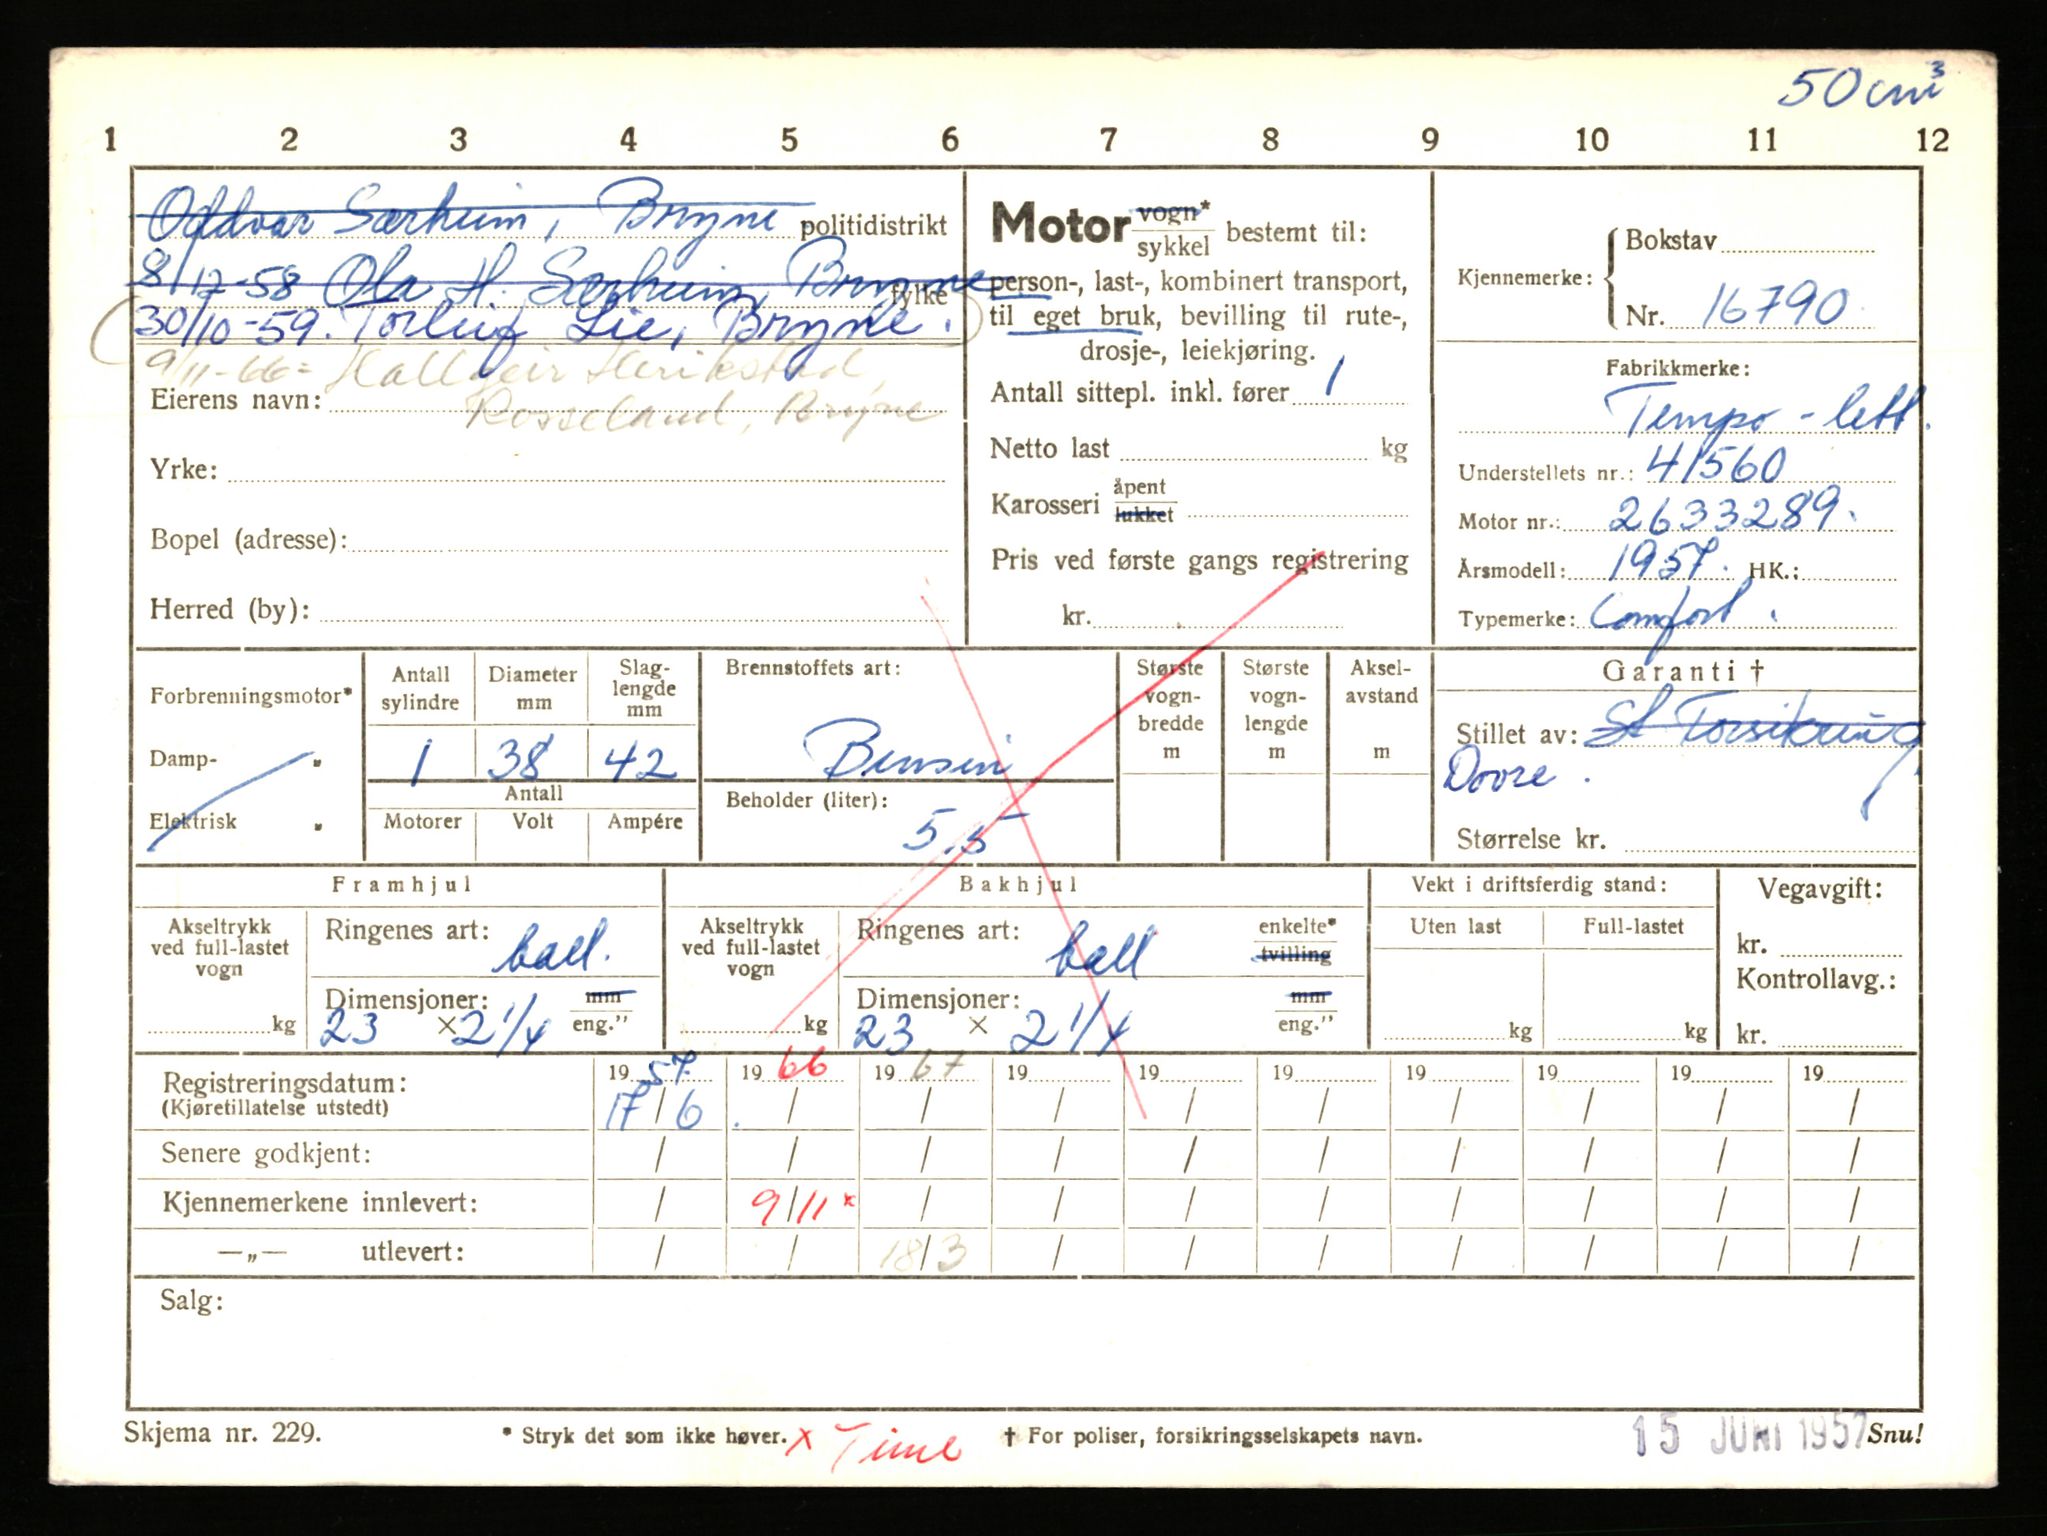 50 cm³
1 2 3 4 5 6 7 8 9 10 11 12
Oddvar Særheim, Bryne politidistrikt
8/12-58 Ola H. Særheim, Bryne fylke
30/10-59. Torleif Lie, Bryne.
9/11-66 = Hallgeir Herikstad,
Eierens navn: Rosseland, Bryne
Yrke:
Bopel (adresse):
Herred (by):
Motor vogn* sykkel bestemt til:
person-, last-, kombinert transport,
til eget bruk, bevilling til rute-,
drosje-, leiekjøring.
Antall sittepl. inkl. fører 1
Netto last kg
Karosseri åpent lukket
Pris ved første gangs registrering
kr.
Kjennemerke: Bokstav
Nr. 16790
Fabrikkmerke:
Tempo - lett.
Understellets nr.: 41560
Motor nr.: 2633289.
Årsmodell: 1957. HK.:
Typemerke: Comfort.
Forbrenningsmotor*
Damp- „
Elektrisk „
Antall sylindre
1
Diameter mm
38
Slag-lengde mm
42
Antall
Motorer Volt Ampére
Brennstoffets art:
Bensin
Beholder (liter):
5,5
Største vogn-bredde m
Største vogn-lengde m
Aksel-avstand m
Garanti †
Stillet av: St Forsikring
Dovre.
Størrelse kr.
Framhjul
Akseltrykk ved full-lastet vogn
kg
Ringenes art: ball.
Dimensjoner: mm
23 × 2 1/4 eng."
Bakhjul
Akseltrykk ved full-lastet vogn
kg
Ringenes art: ball enkelte* tvilling
Dimensjoner: mm
23 × 2 1/4 eng."
Vekt i driftsferdig stand:
Uten last Full-lastet
kg kg
Vegavgift:
kr.
Kontrollavg.:
kr.
Registreringsdatum: 19 57. 19 66 19 67 19 19 19 19 19 19 19
(Kjøretillatelse utstedt) 17/6. / / / / / / / / /
Senere godkjent: / / / / / / / / / /
Kjennemerkene innlevert: / 9/11 x / / / / / / / /
—„— utlevert: / / 18/3 / / / / / / /
Salg:
Skjema nr. 229. * Stryk det som ikke høver. x Time † For poliser, forsikringsselskapets navn. 15 JUNI 1957 Snu!